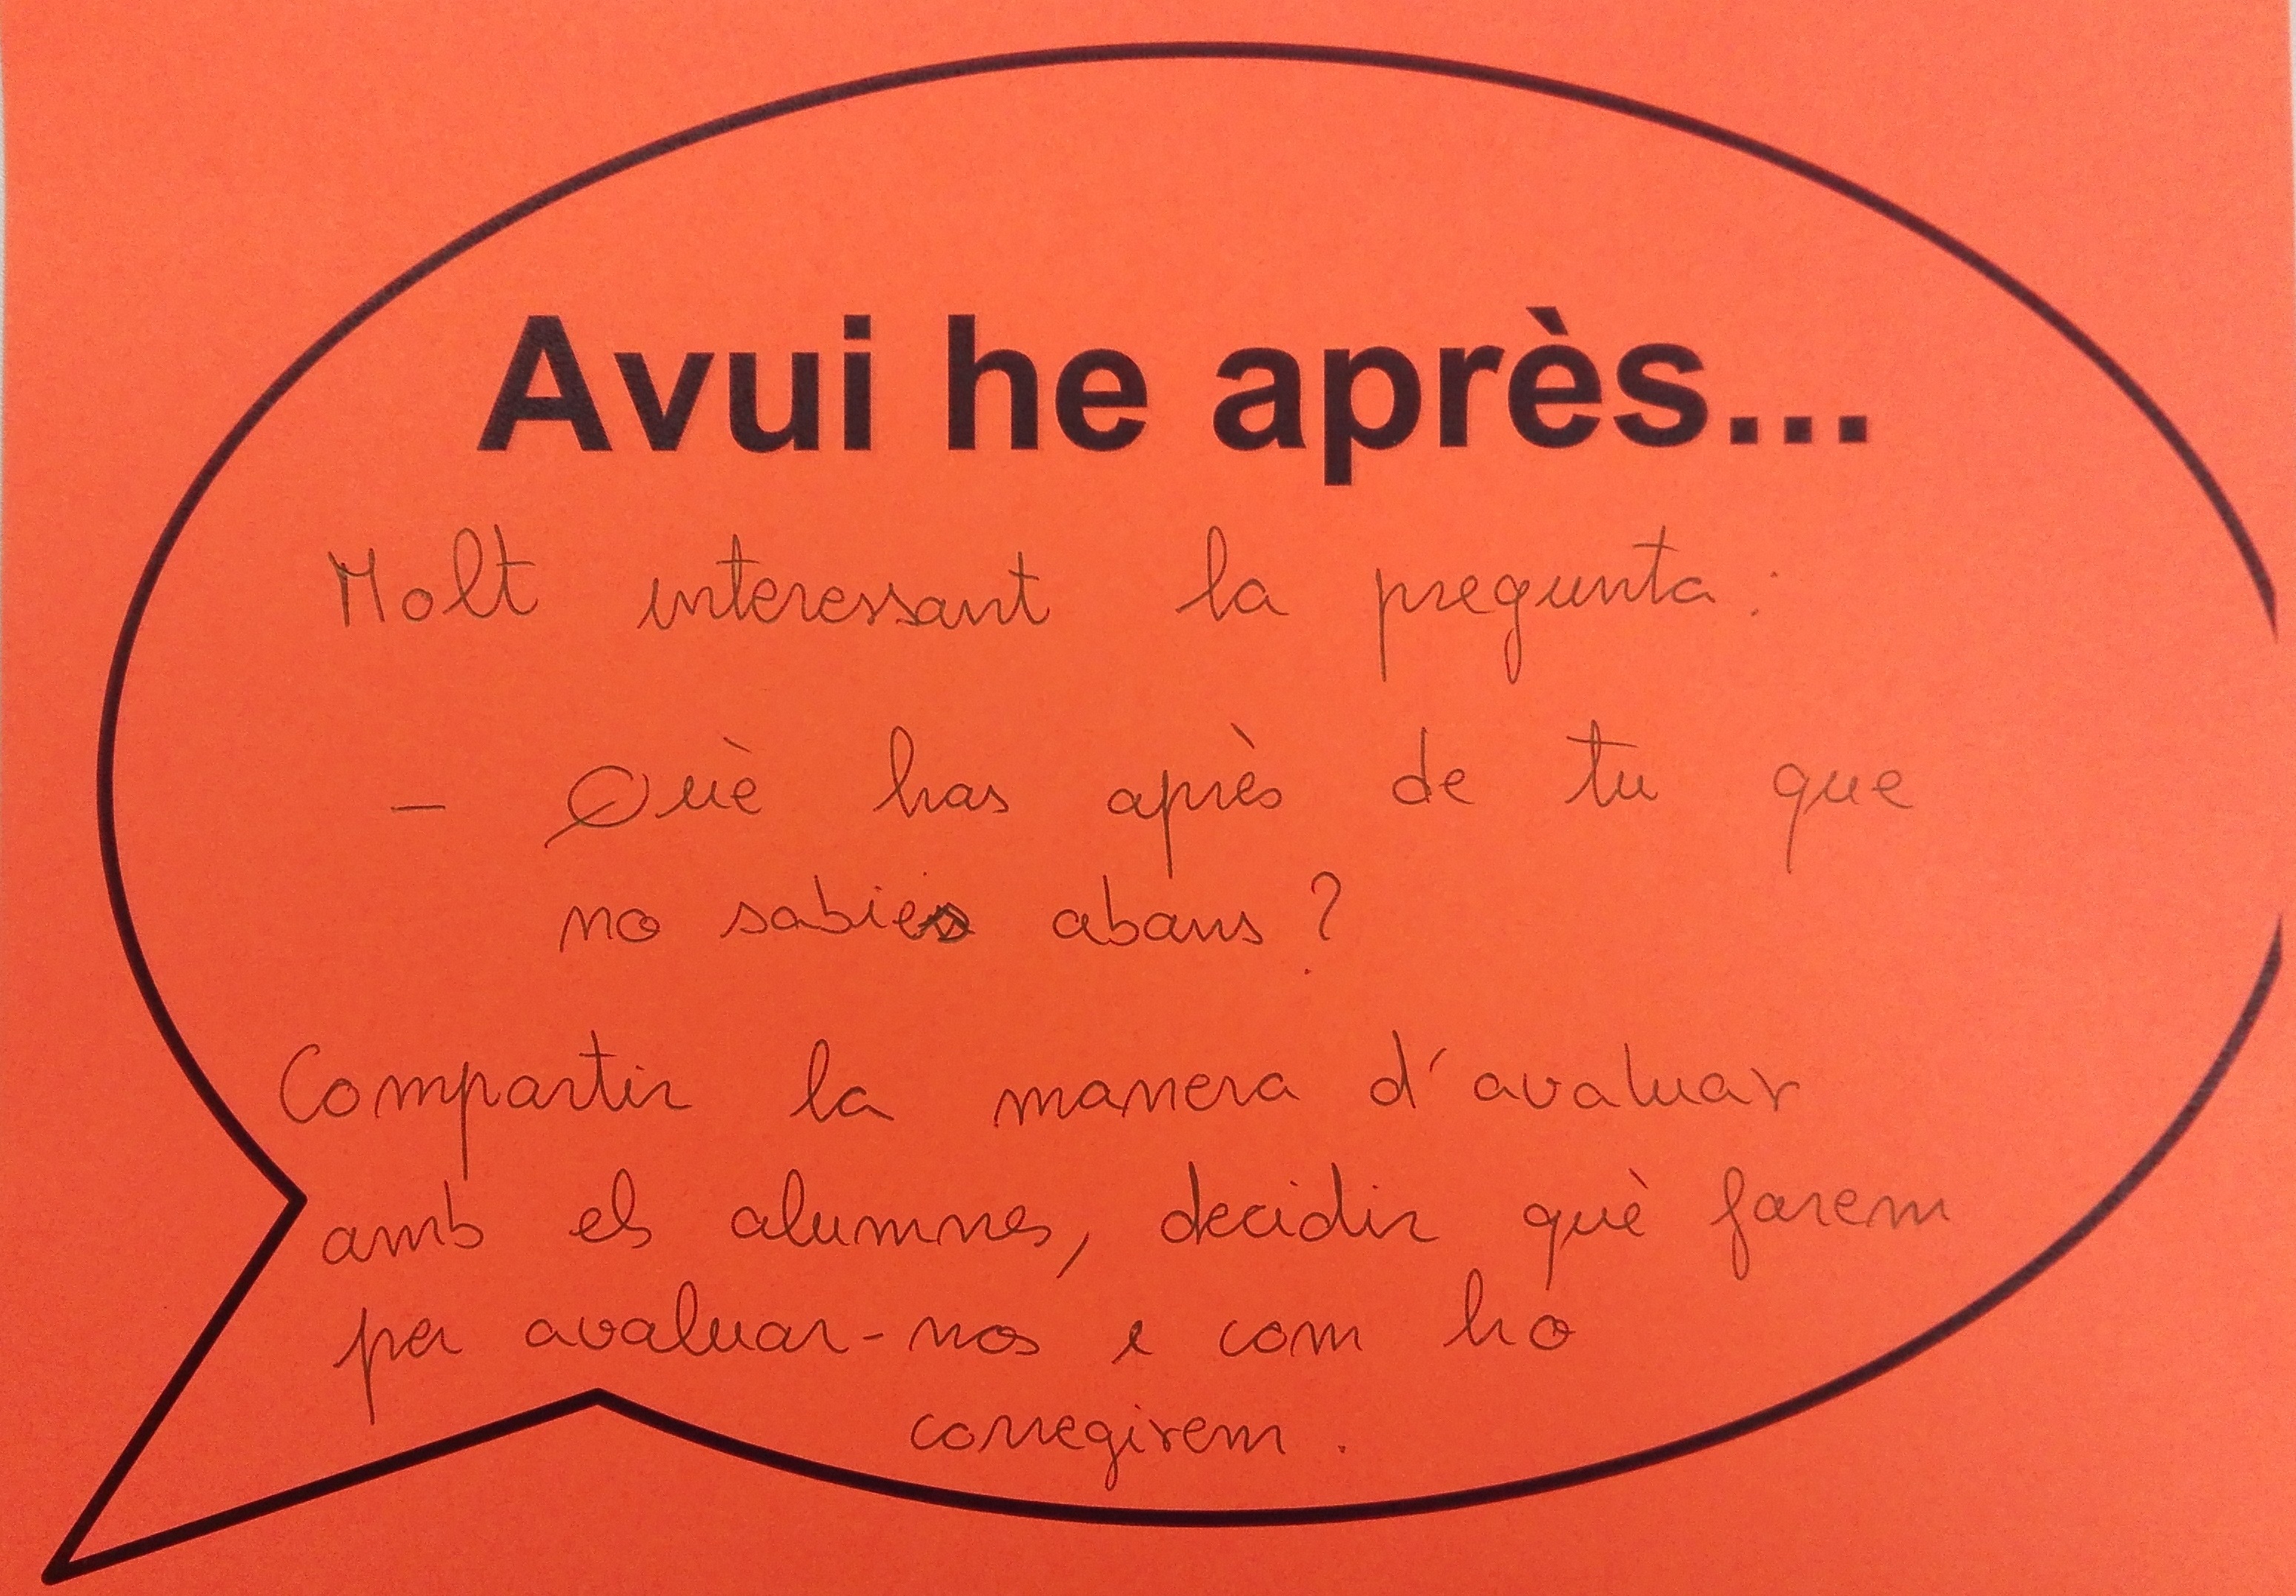 Avui he après...
Molt interessant la pregunta:
- Què has après de tu que
no sabies abans?
Compartir la manera d'avaluar
amb els alumnes, decidir què farem
per avaluar-nos i com ho
corregirem.